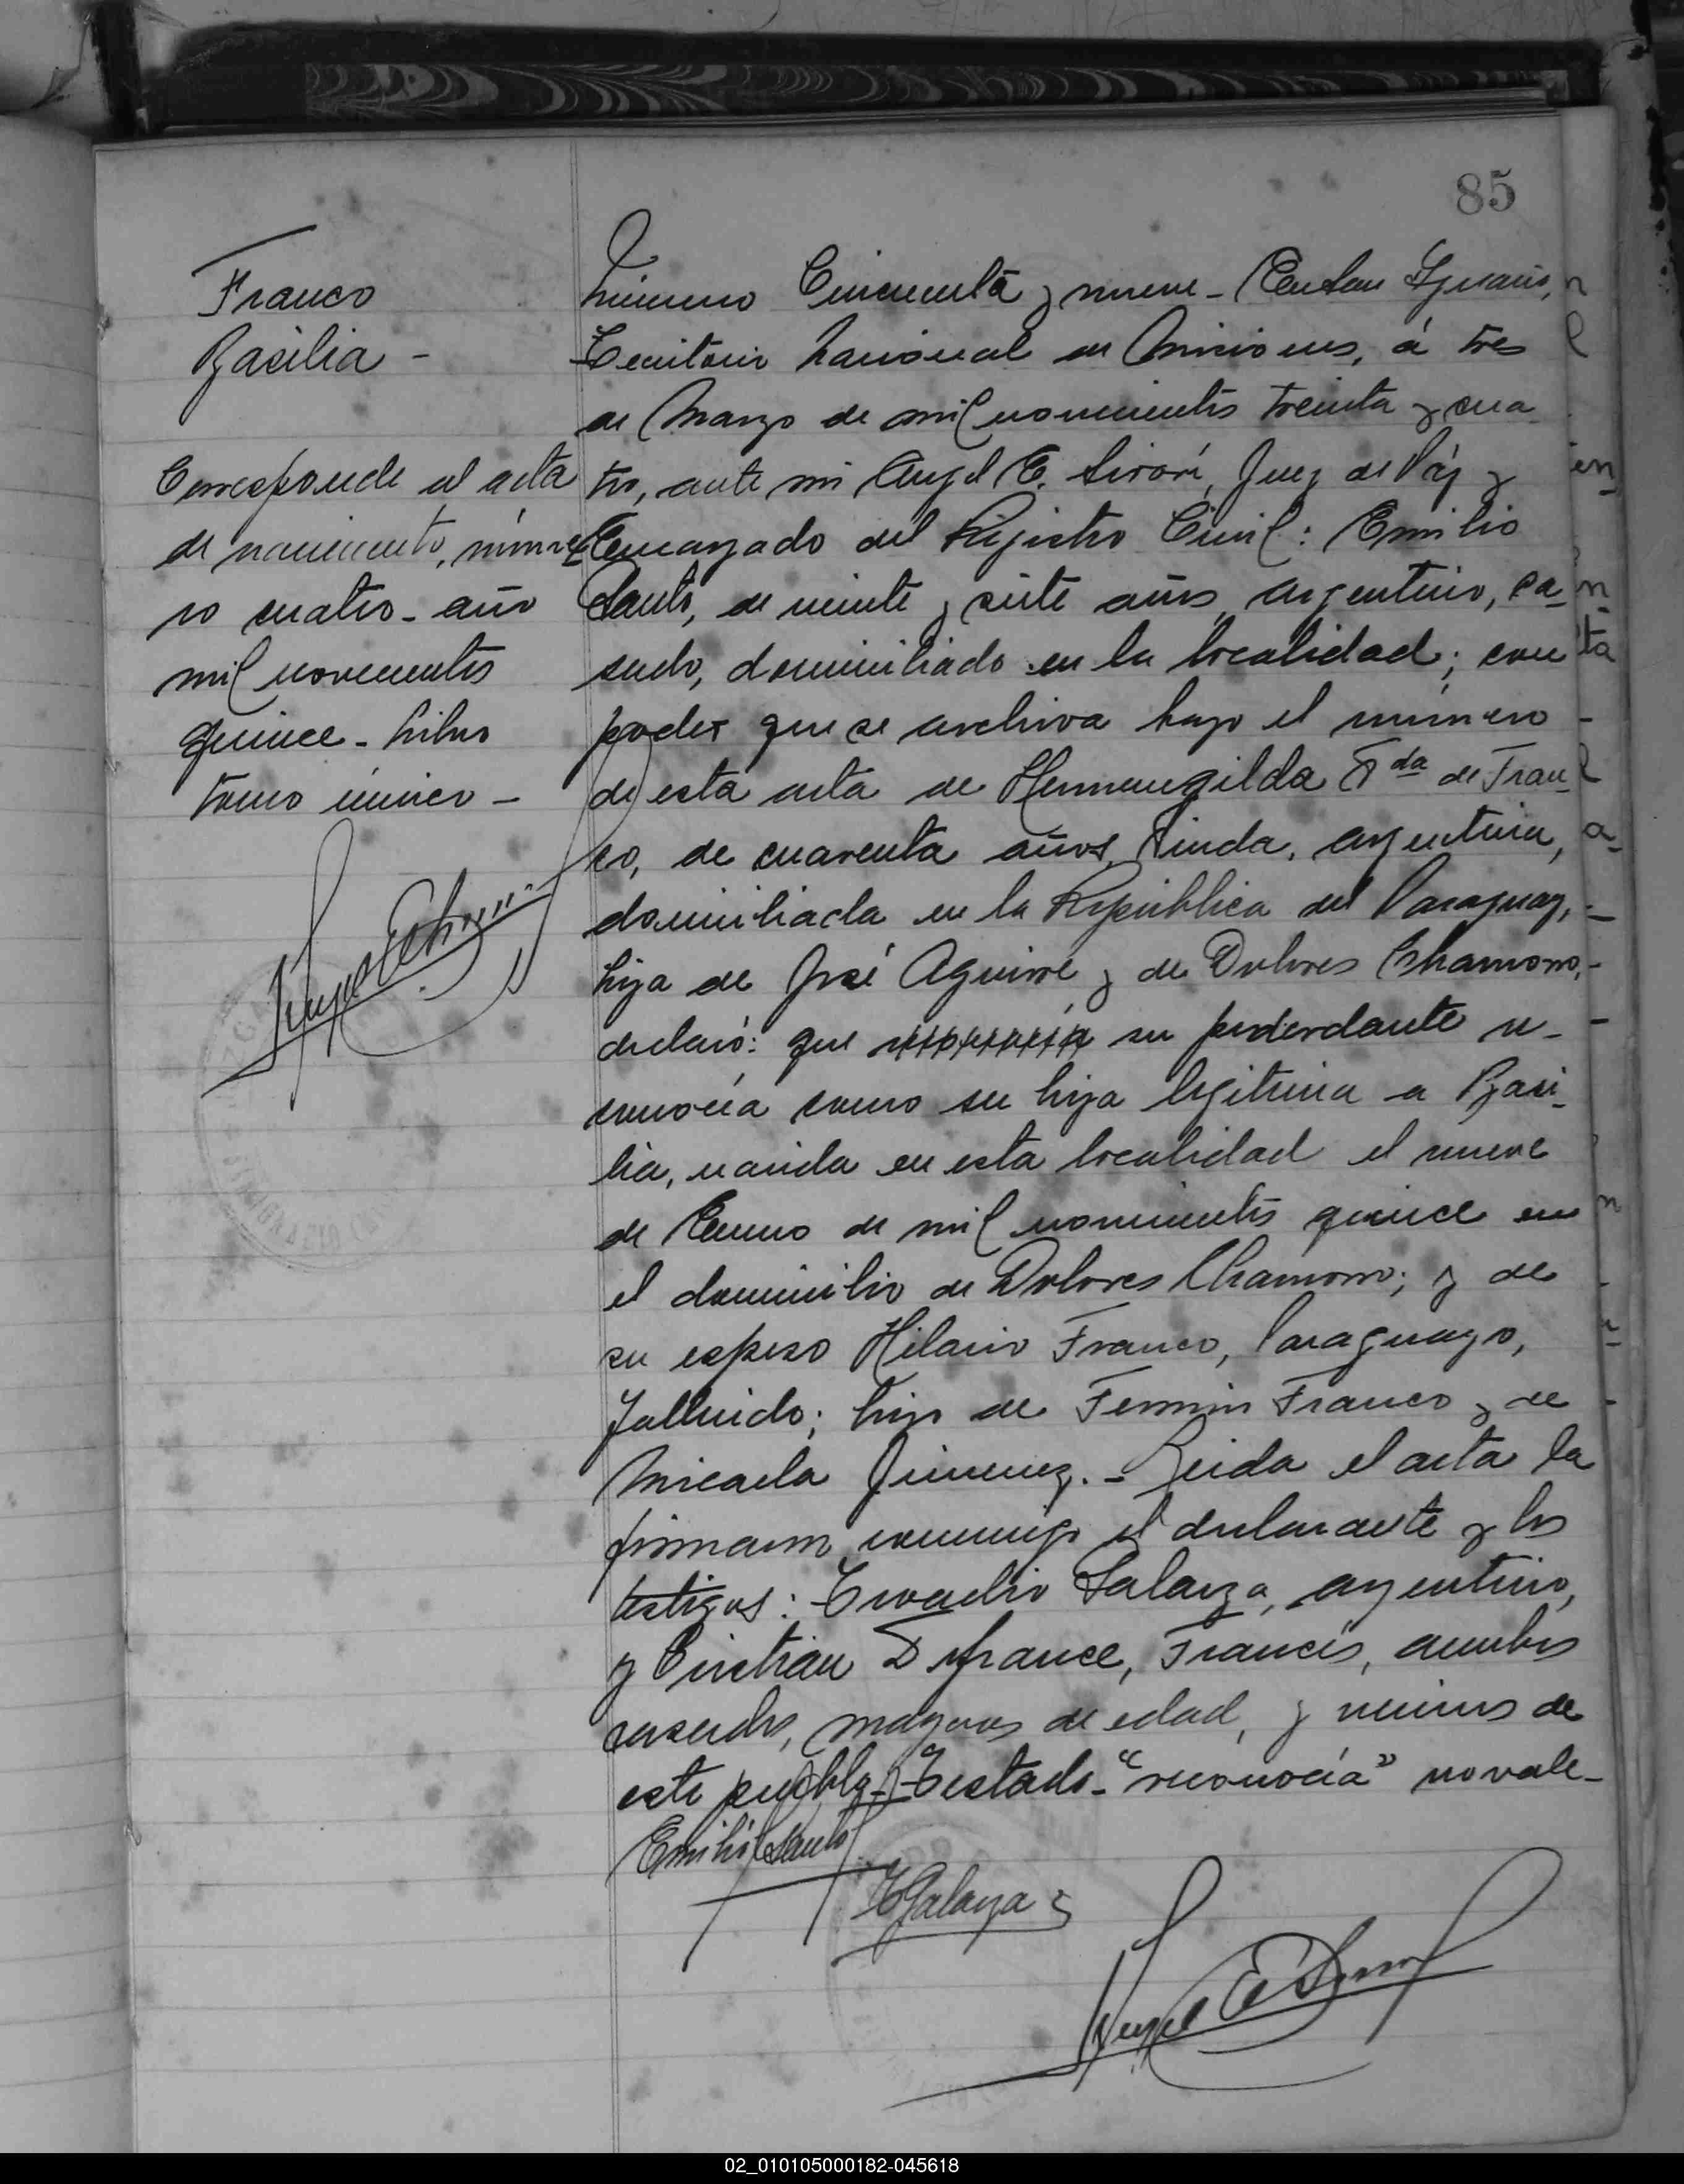 85
Franco
Basilia -
Corresponde al acta
de nacimiento, núme
ro cuatro - año
mil novecientos
quince - Libro
tomo único -
Número Cincuenta y nueve - En San Ignacio,
Territorio Nacional de Misiones, á tres
de Marzo de mil novecientos treinta y cua
tro, ante mi Angel E. Juez de Páz y
Encargado del Registro Civil: Emilio
Santo, de veinte y siete años, argentino, ca-
sado, domiciliado en la localidad; con
poder que se archiva bajo el número
de esta acta de Hermengilda Vda de Fran-
co, de cuarenta años, viuda, argentina,
domiciliada en la República del Paraguay,
hija de José Aguirre y de Dolores Chamorro,
declaró: que reconocía su poderdante re-
conocía como su hija legitima a Basi-
lia, nacida en esta localidad el nueve
de Enero de mil novecientos quince en
el domicilio de Dolores Chamorro; y de
su esposo Hilario Franco, Paraguayo,
fallecido; hijo de Fermin Franco y de
Micaela Jimenez. - Leida el acta la
firmaron conmigo el declarante y los
testigos: Galarza, argentino,
y Cristian Defrance, Francés, ambos
casados, mayores de edad, y vecinos de
este pueblo - Testado - "reconocía" no vale -
Emilio Santo
Galarza
Angel E.
02_010105000182-045618